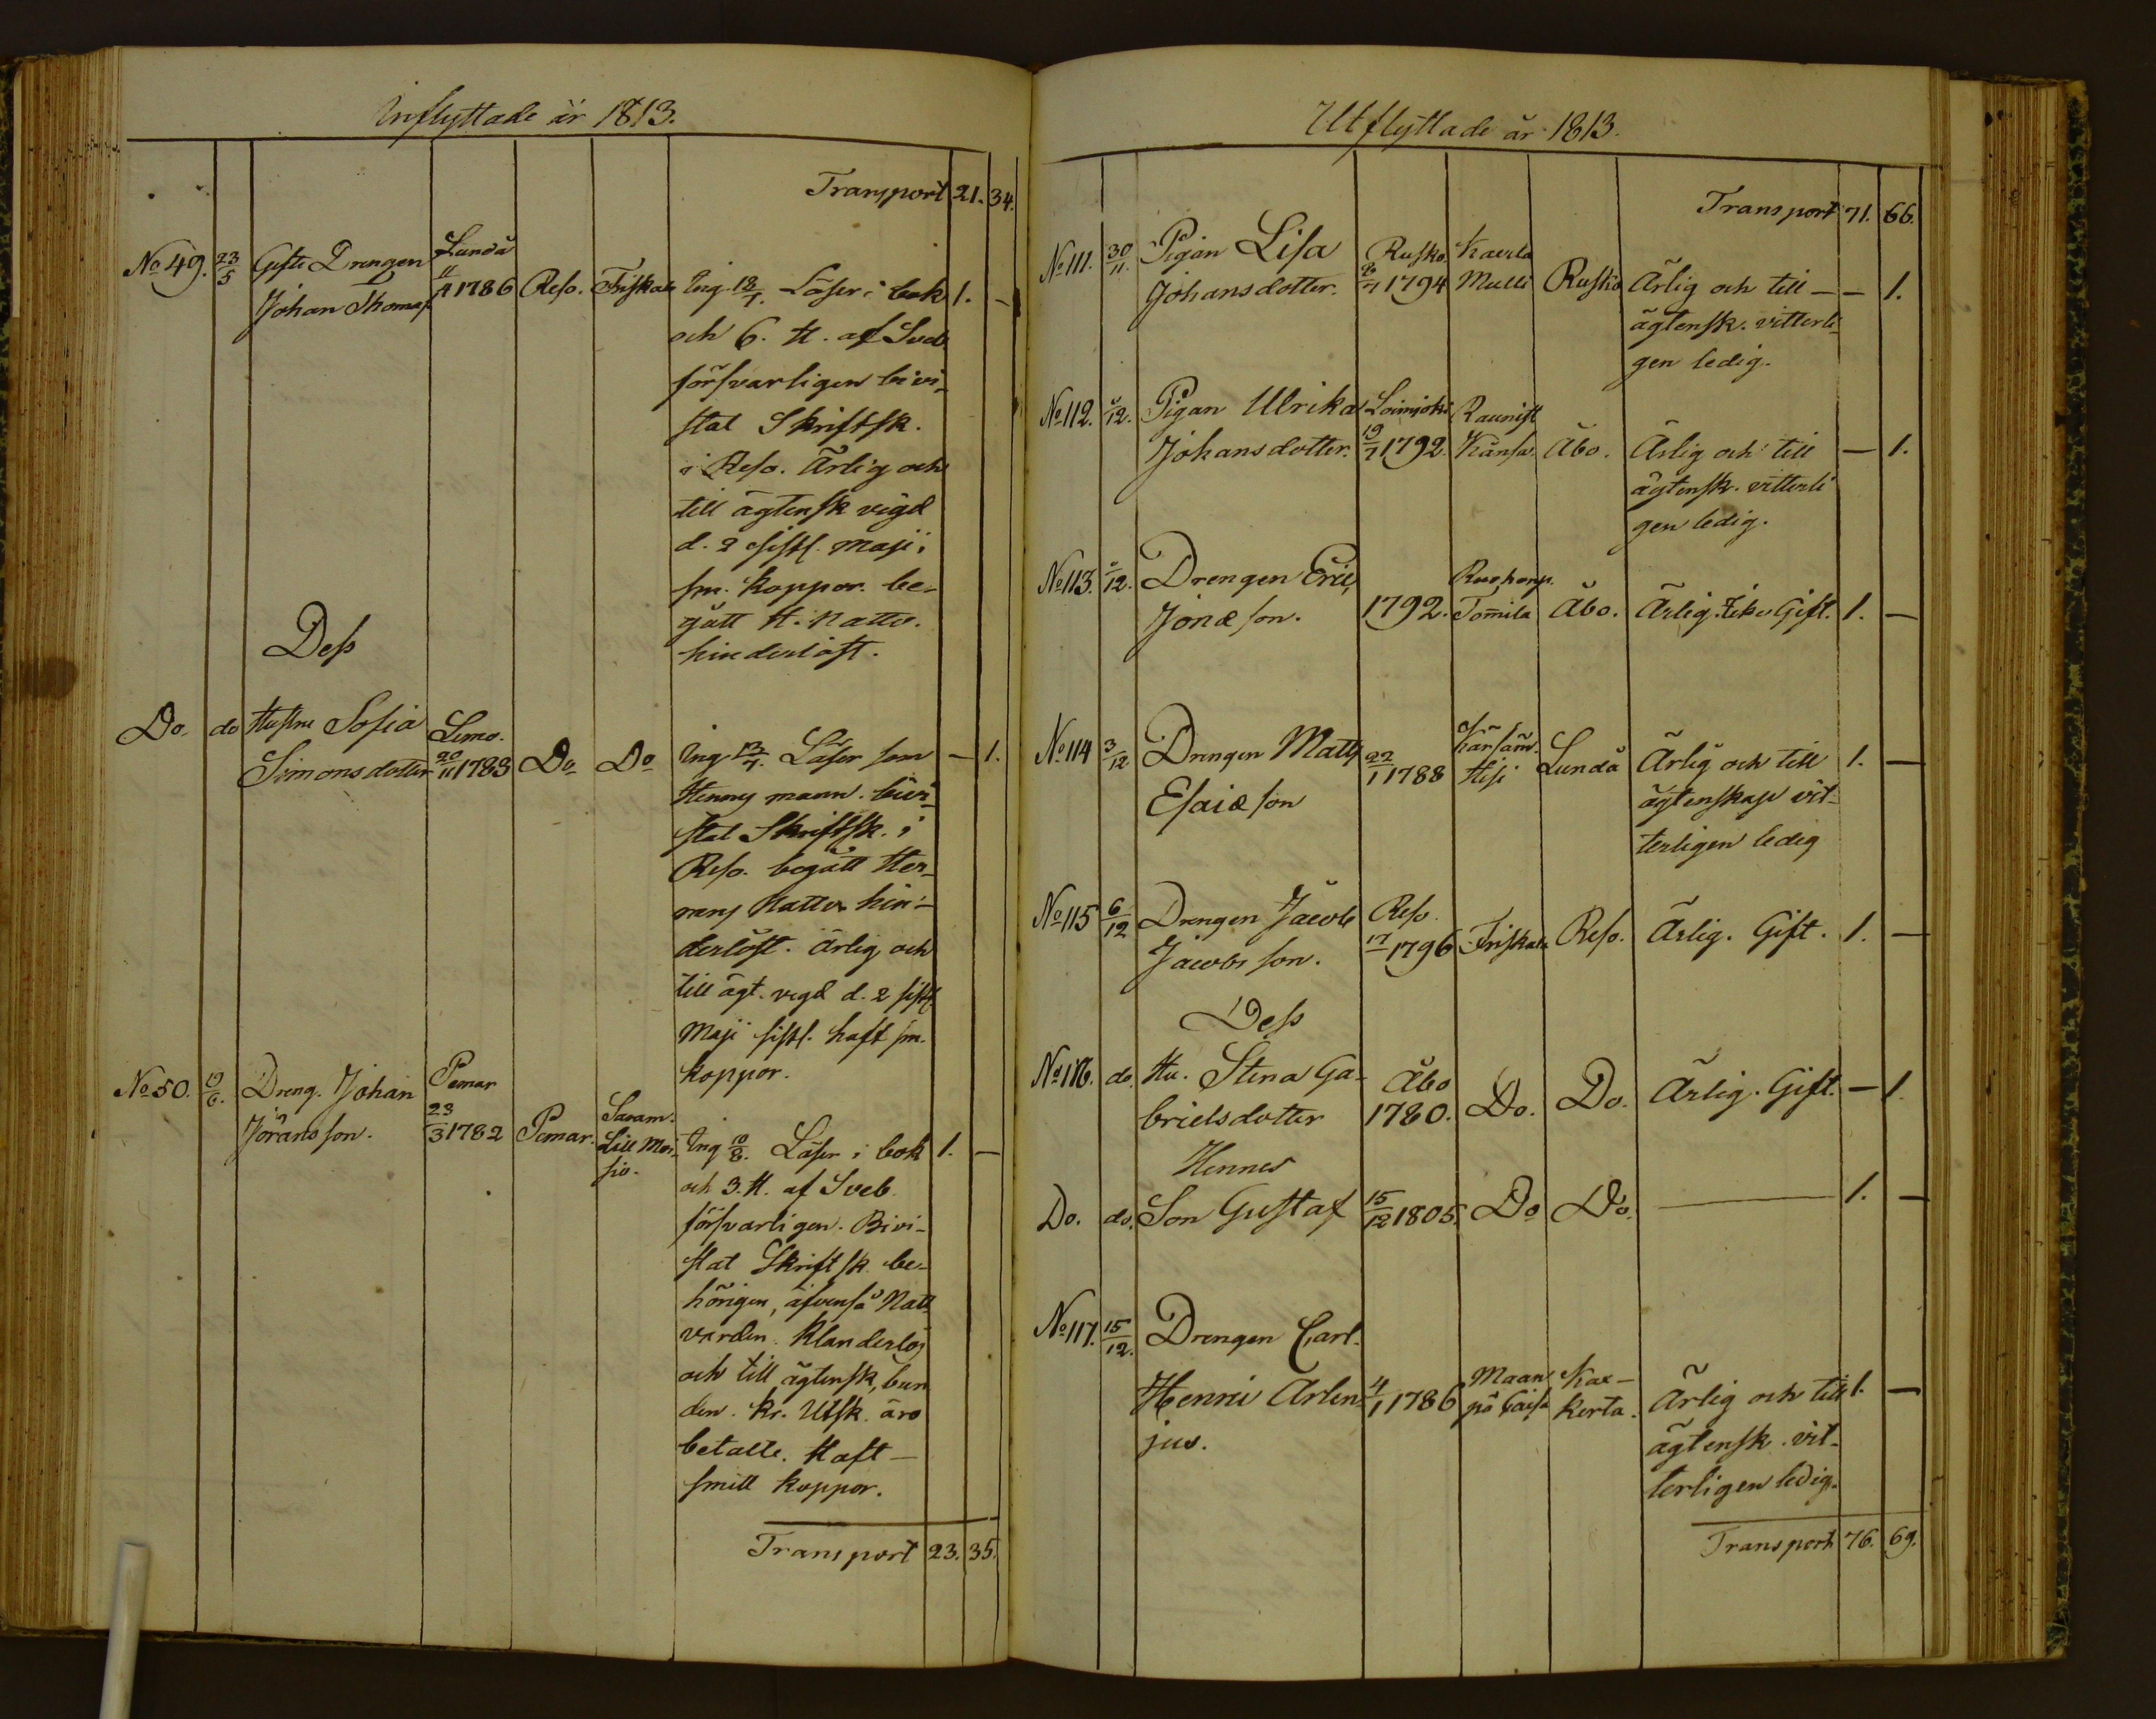 Inflyttade år 1813.
Transport 21. 34.
No 49. 23/5 Gifte Drengen Lundå
Johan Thomas 11/4 1786 Reso. Friskala Ing. 18/7. Läser i bok 1. —
och 6. H. af Sveb.
försvarligen bivi-
stat Skriftsk.
i Reso. Ärlig och
till ägtensk vigd
d. 2 sistl. Maji;
sm. koppor. be-
gått H. Nattv.
hinderlöst.
Dess
Do. do Hustru Sofia Lemo.
Simonsdotter 20/11 1783 Do Do Ing. 13/7. Läser som — 1.
Hennes mann. bevi-
stat Skriftsk. i
Reso. begått Her-
rans Nattv. hin-
derlöst. Ärlig och
till ägt. vigd d. 2 sistl.
Maji sistl. haft sm.
koppor.
No 50. 19/6. Dreng. Johan Pemar
Jöransson. 23/3 1782 Pemar. Savam. Lill Moi-
sio. Ing 10/8. Läser i bok 1. —
och 3. H. af Sveb.
försvarligen. Bivi-
stat Skriftsk. be-
hörigen, äfvenså Natt
varden. Klanderlös
och till ägtensk, bun
den. Kr. Utsk. äro
betalte. Haft —
smitt koppor.
Transport 23. 35.
Utflyttade år 1813.
Transport 71. 66.
No 111. 30/11. Pigan Lisa Rusko. Kaerla
Johansdotter. 1794 Mulli Rusko Ärlig och till — — 1.
ägtensk. vitterli-
gen ledig.
No 112. /12. Pigan Ulrika Loimjoki Raunist
Johansdotter. 19/7 1792. Känsa. Åbo. Ärlig och till — 1.
ägtensk. vitterli
gen ledig.
No 113. /12. Drengen Eric Ruohonp.
Jonæson. 1792. Tomila Åbo. Ärlig. Gift. 1. —
No 114 3/12 Drengen Matts Kärsäm.
Esaiæson 22/1 1788 Hiji Lundå Ärlig och till 1. —
ägtenskap vit-
terligen ledig
No 115 6/12 Drengen Jacob Reso.
Jacobsson. 17/ 1796 Friskala Reso. Ärlig. Gift. 1. —
Dess
No 116. do. Hu. Stina Ga- Åbo
brielsdotter 1780. Do. Do. Ärlig. Gift. — 1
Hennes
Do. do. Son Gustaf 15/12 1805. Do Do. — 1. —
No 117. 15/12. Drengen Carl
Henric Arlen- 4/1 1786 Maan Kas-
jus. på kerta. Ärlig och till 1. —
ägtensk. vit-
terligen ledig.
Transport 76. 69.